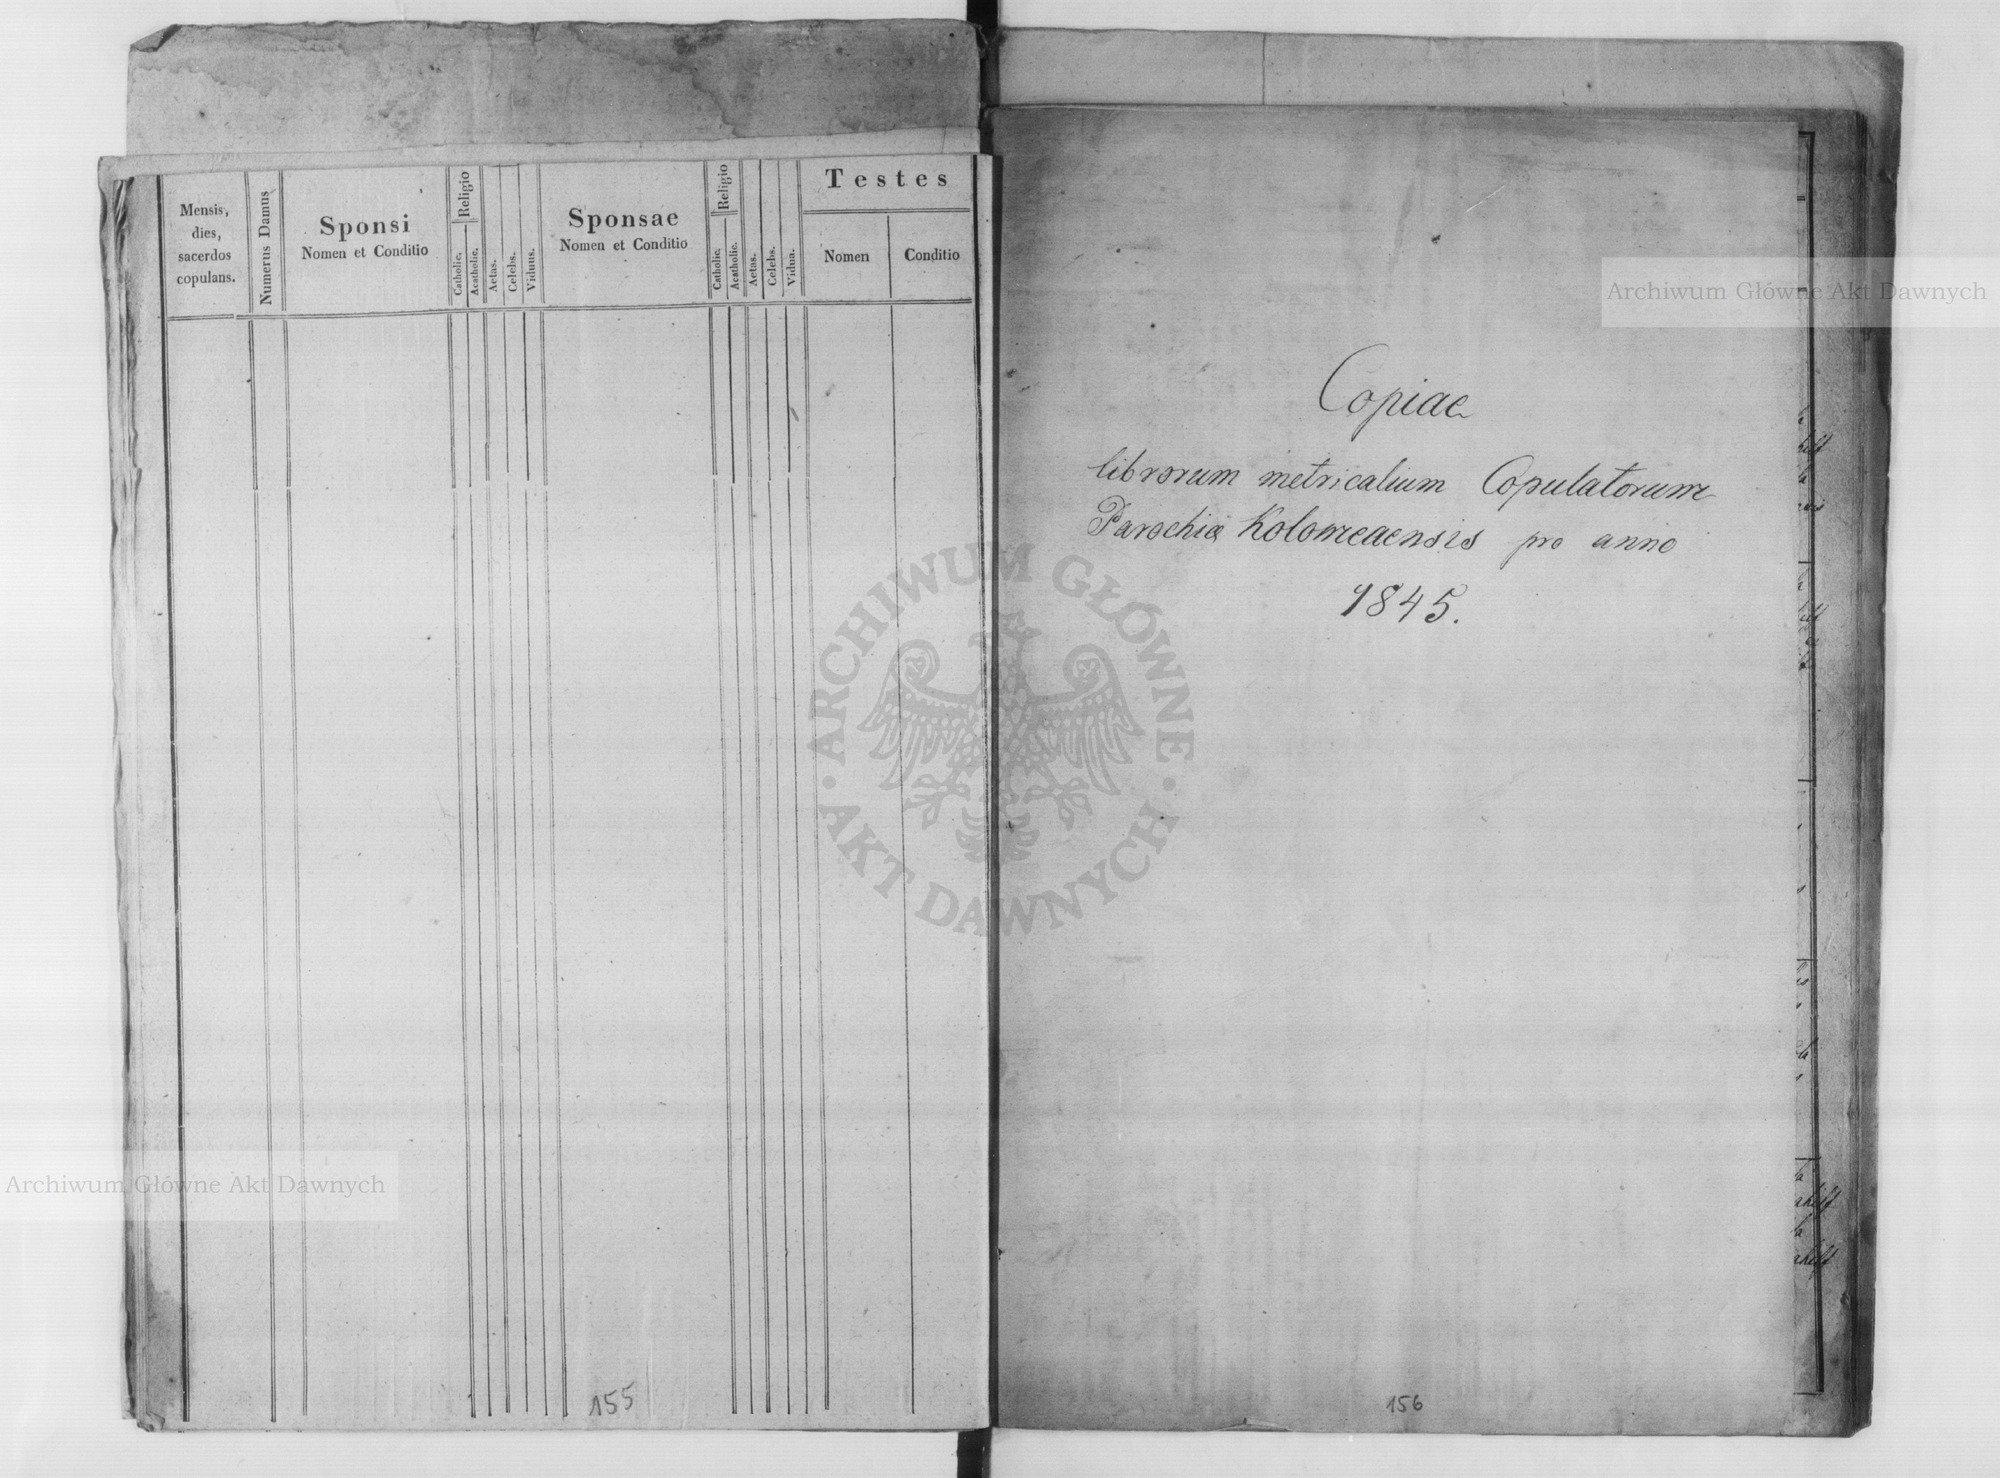 Mensis,
dies,
sacerdos
copulans.
Numerus Damus
Sponsi
Nomen et Conditio
Religio
Catholic.
Acatholic.
Aetas.
Celebs.
Viduus.
Sponsae
Nomen et Conditio
Religio
Catholic.
Acatholic.
Aetas.
Celebs.
Vidua.
Testes
Nomen
Conditio
155
Copiae
librorum metricalium Copulatorum
Parochiæ Kolomeaensis pro anno
1845.
156
Archiwum Główne Akt Dawnych
ARCHIWUM GŁÓWNE
AKT DAWNYCH
Archiwum Główne Akt Dawnych